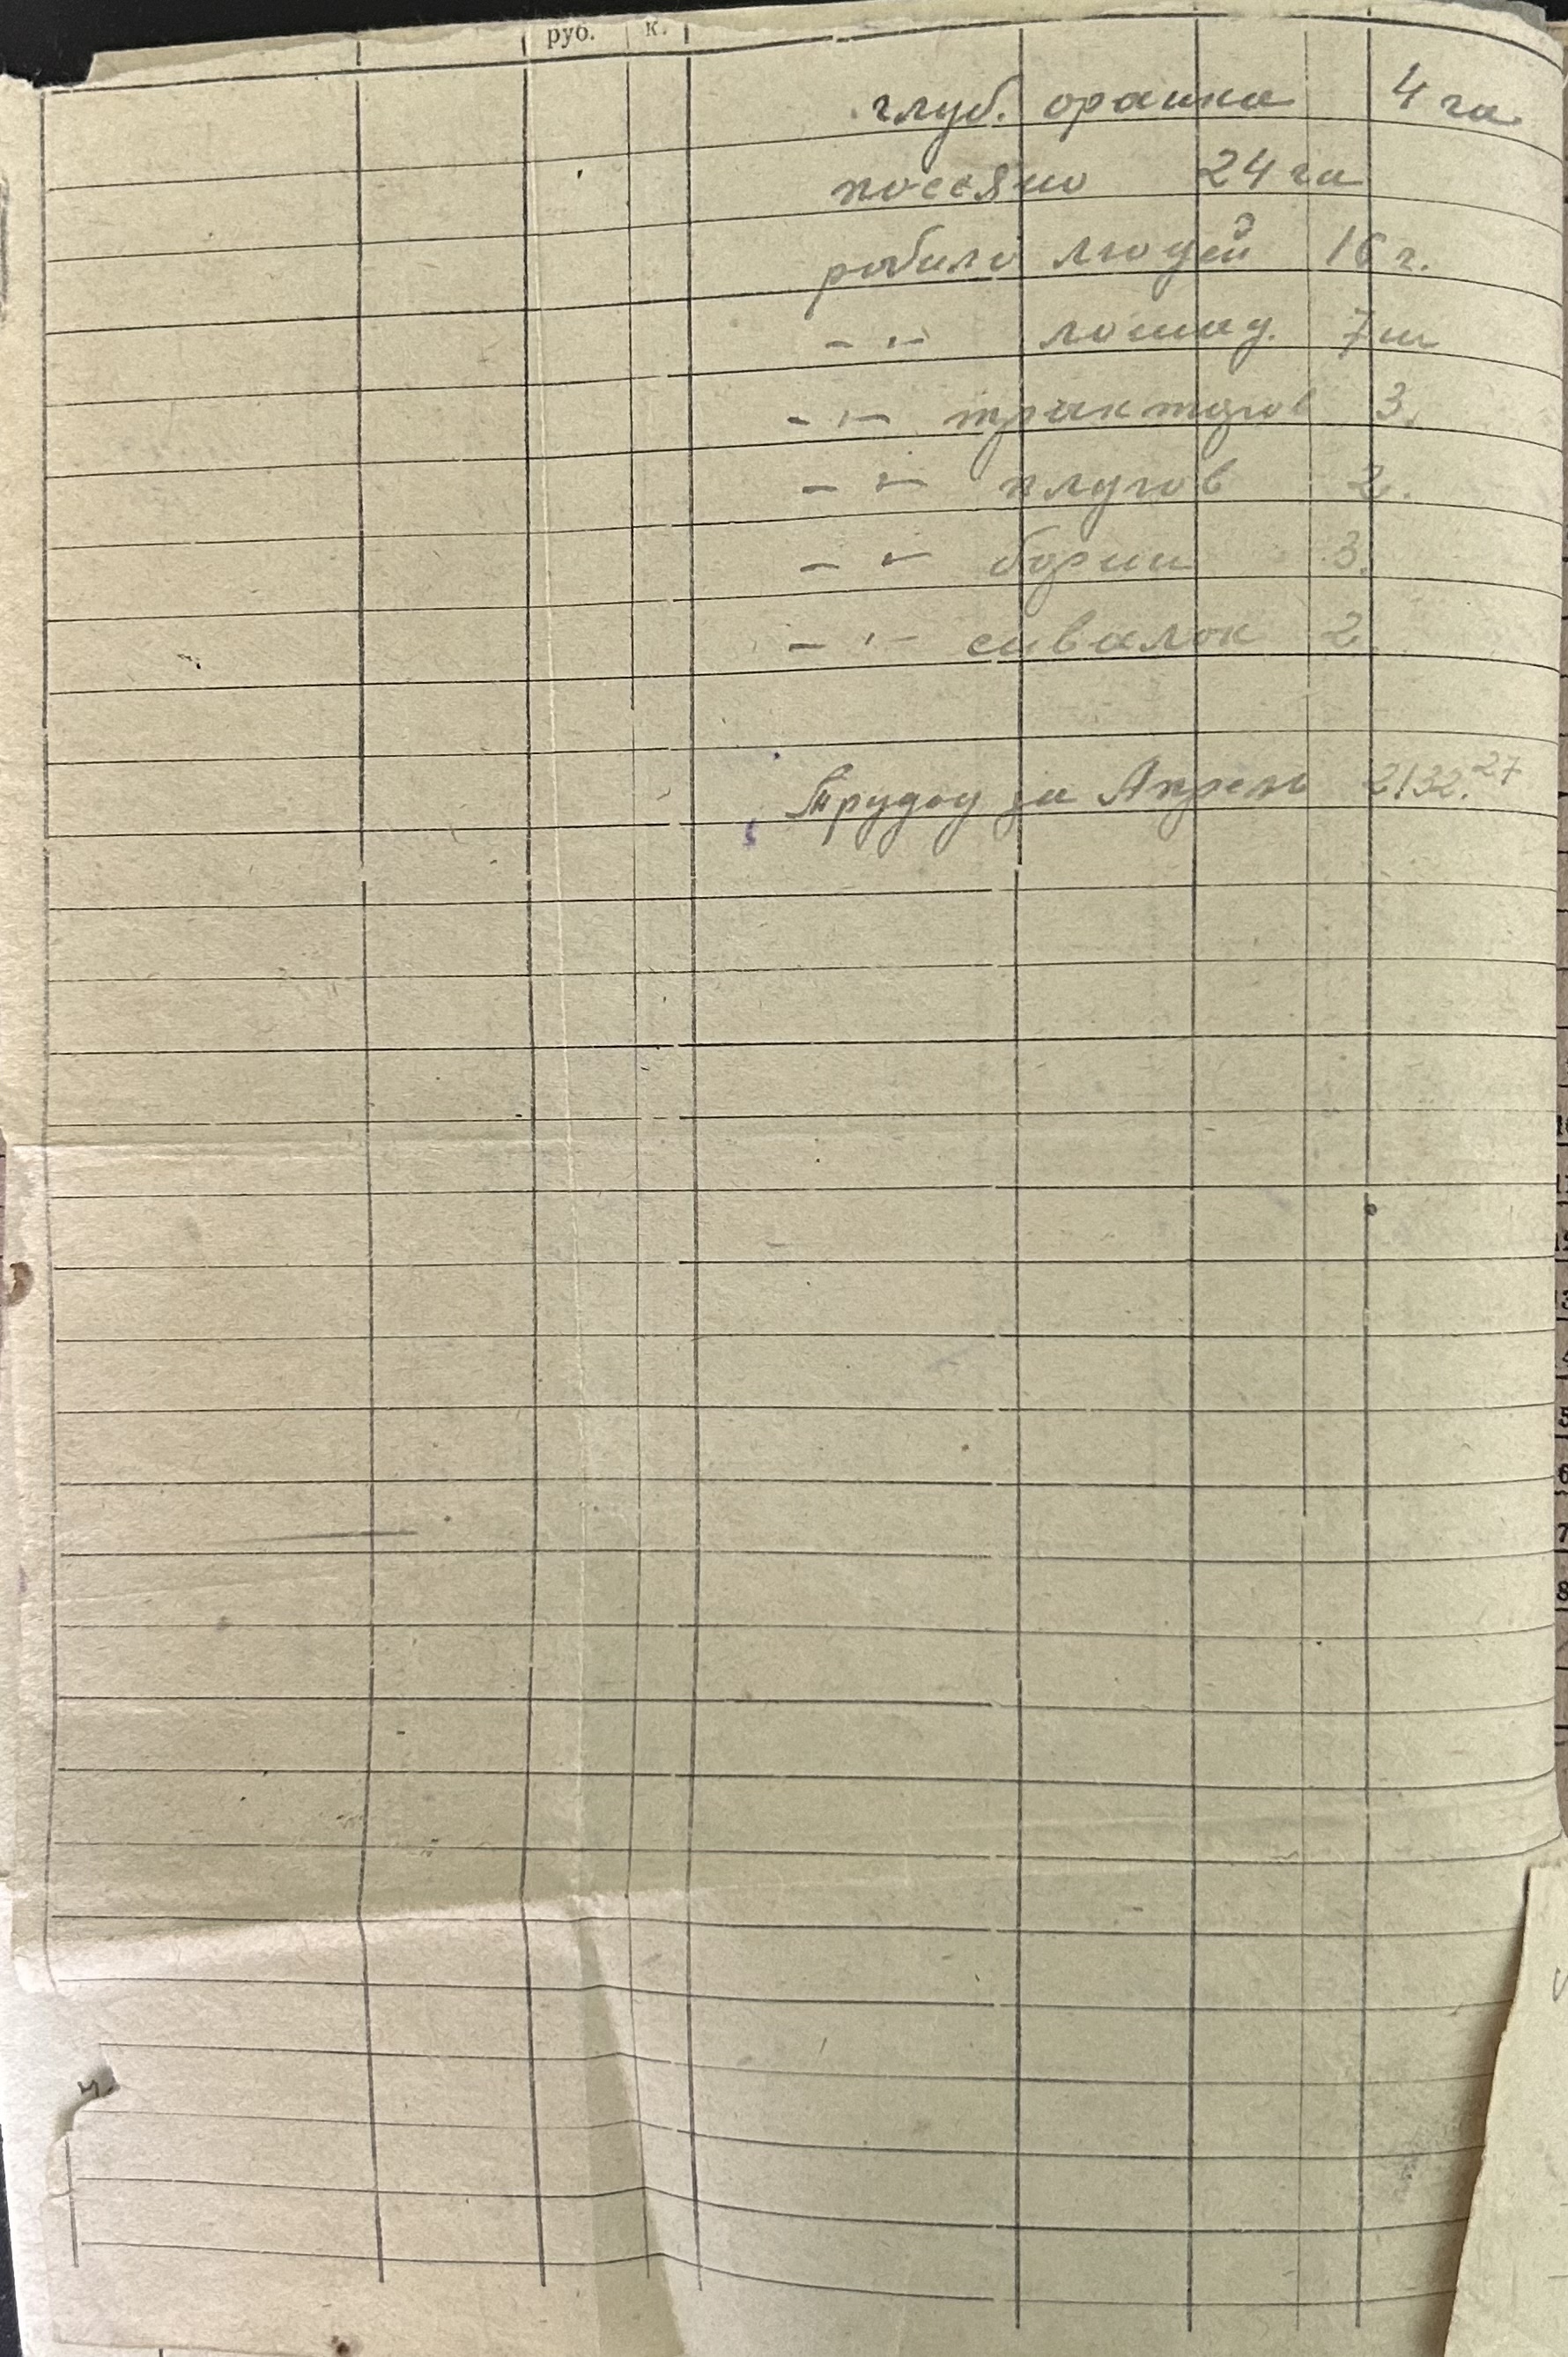 руб. к.
глуб. оранка 4 га
посеяно 24 га
робило людей 16 г.
- " - лошад. 7 ш
- " - тракторов 3.
- " - плугов 2.
- " - борин 3.
- " - сивалок 2
Трудод за Апрель 2132.27